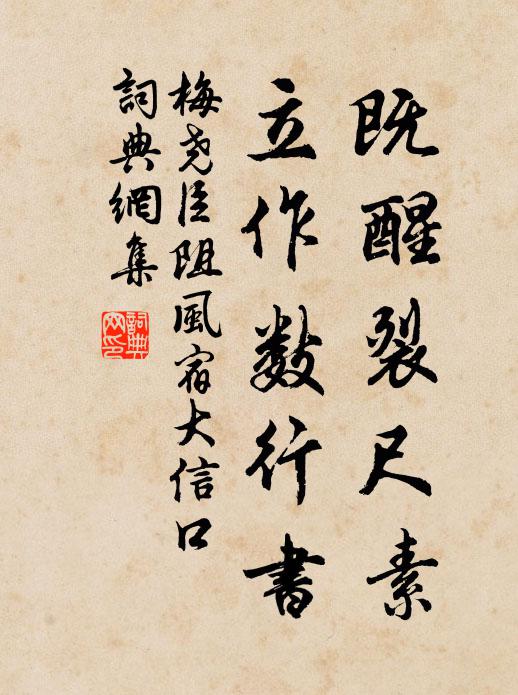 既醒裂尺素
立作数行書
梅尧臣阻風宿大信口
詞典網集
詞典
网印